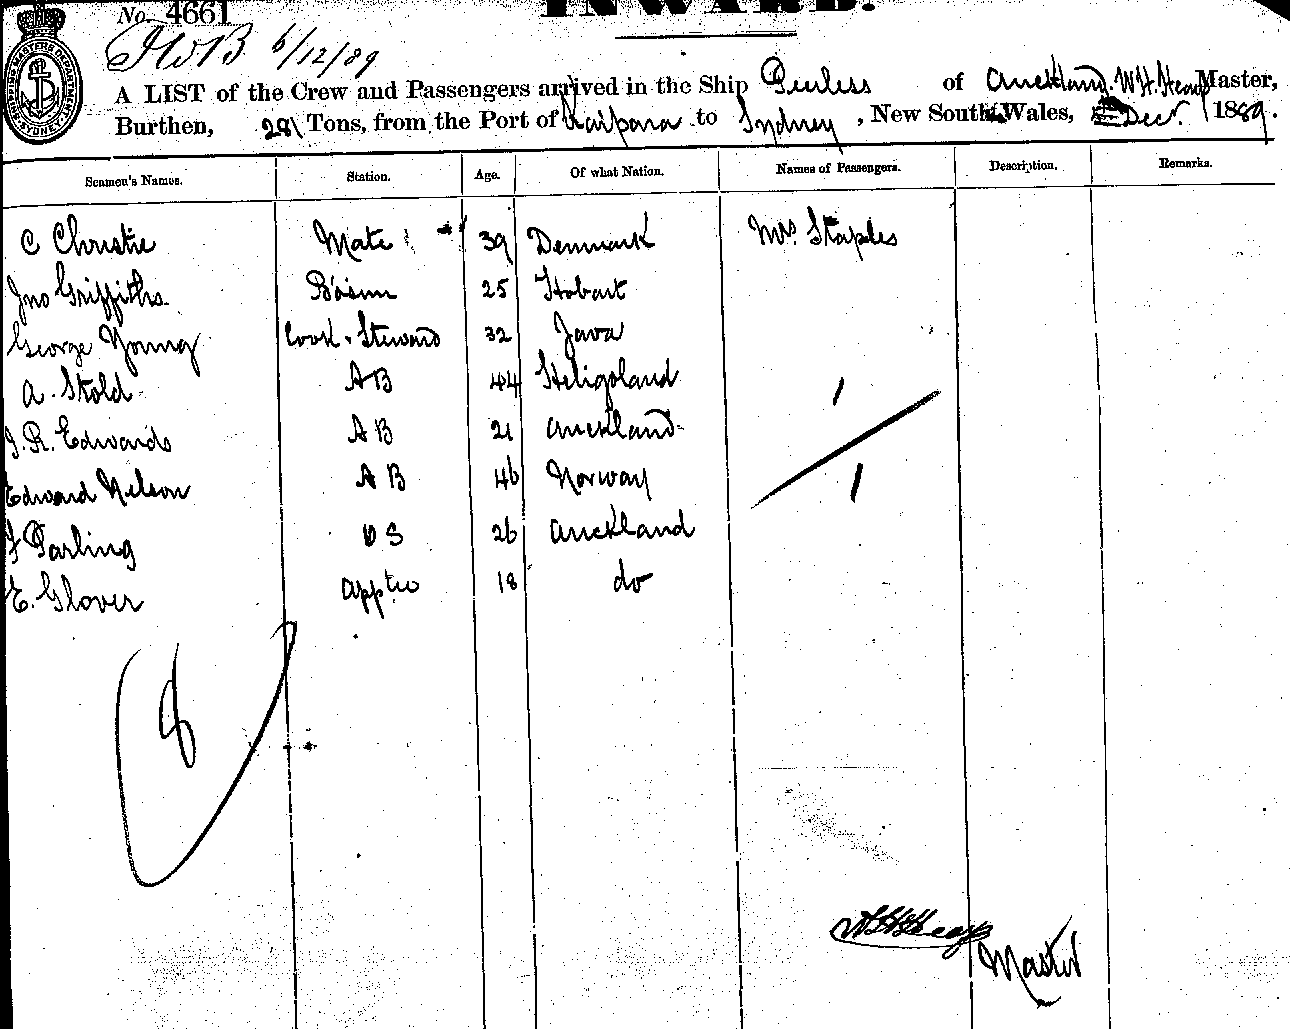 INWARD.
No. 4661
6/12/89
A LIST of the Crew and Passengers arrived in the Ship Peerless of Auckland. W. H. Heap Master,
Burthen, 281 Tons, from the Port of Kaipara to Sydney, New South Wales, Dec. 1889.
Seamen's Names. Station. Age. Of what Nation. Names of Passengers. Description. Remarks.
C Christie Mate 39 Denmark Mrs. Staples
Jno Griffiths Bosun 25 Hobart
George Young Cook & Steward 32 Java
A. Stold AB 44 Heligoland
J. R. Edwards AB 21 Auckland
Edward Nelson AB 46 Norway
F Darling OS 26 Auckland
E. Glover Apptce 18 do
8
W H Heap
Master